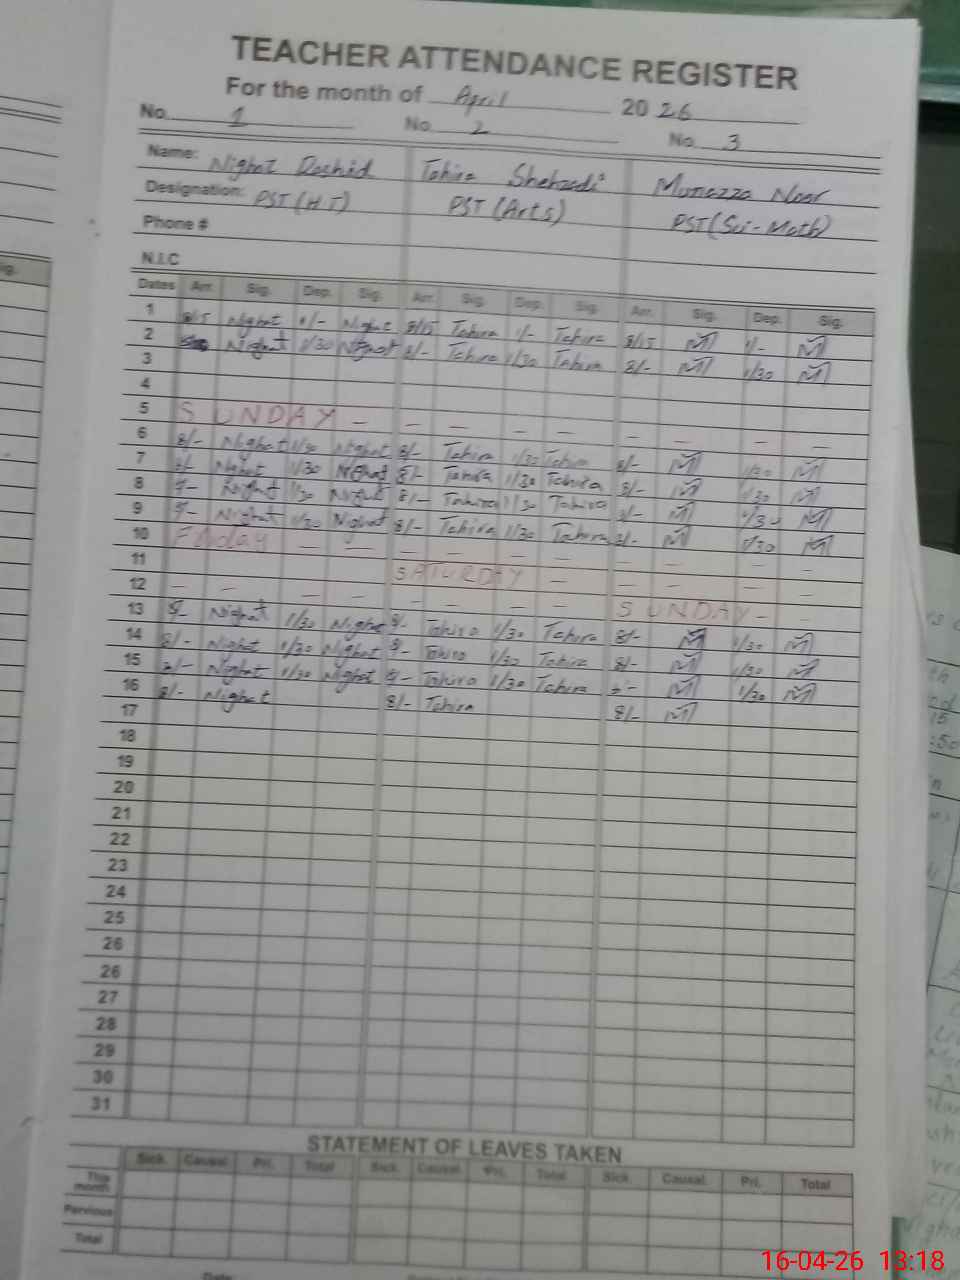 TEACHER ATTENDANCE REGISTER
For the month of April 2026
No. 1 No. 2 No. 3
Name: Nighat Rashid Tahira Shehzadi Munazza Noor
Designation: PST (HT) PST (Arts) PST (Sci-Math)
Phone #
N.I.C
Dates Arr. Sig. Dep. Sig. Arr. Sig. Dep. Sig. Arr. Sig. Dep. Sig.
1 8/15 Nighat 1/- Nighat 8/15 Tahira 1/- Tahira 8/15 M 1/- M
2 Nighat 1/30 Nighat 8/- Tahira 1/30 Tahira 8/- M 1/30 M
3
4
5 SUNDAY - - - - - - - - - -
6 8/- Nighat 1/30 Nighat 8/- Tahira 1/30 Tahira 8/- M 1/30 M
7 8/- Nighat 1/30 Nighat 8/- Tahira 1/30 Tahira 8/- M 1/30 M
8 8/- Nighat 1/30 Nighat 8/- Tahira 1/30 Tahira 8/- M 1/30 M
9 8/- Nighat 1/30 Nighat 8/- Tahira 1/30 Tahira 8/- M 1/30 M
10 Friday - - - - - - - - - -
11 - - - - SATURDAY - - - - -
12 - - - - - - - - SUNDAY - -
13 8/- Nighat 1/30 Nighat 8/- Tahira 1/30 Tahira 8/- M 1/30 M
14 8/- Nighat 1/30 Nighat 8/- Tahira 1/30 Tahira 8/- M 1/30 M
15 8/- Nighat 1/30 Nighat 8/- Tahira 1/30 Tahira 8/- M 1/30 M
16 8/- Nighat 8/- Tahira 8/- M
17
18
19
20
21
22
23
24
25
26
26
27
28
29
30
31
STATEMENT OF LEAVES TAKEN
Sick. Causal. Pri. Total Sick. Causal. Pri. Total Sick. Causal. Pri. Total
This month
Pervious
Total
Date:
16-04-26 13:18